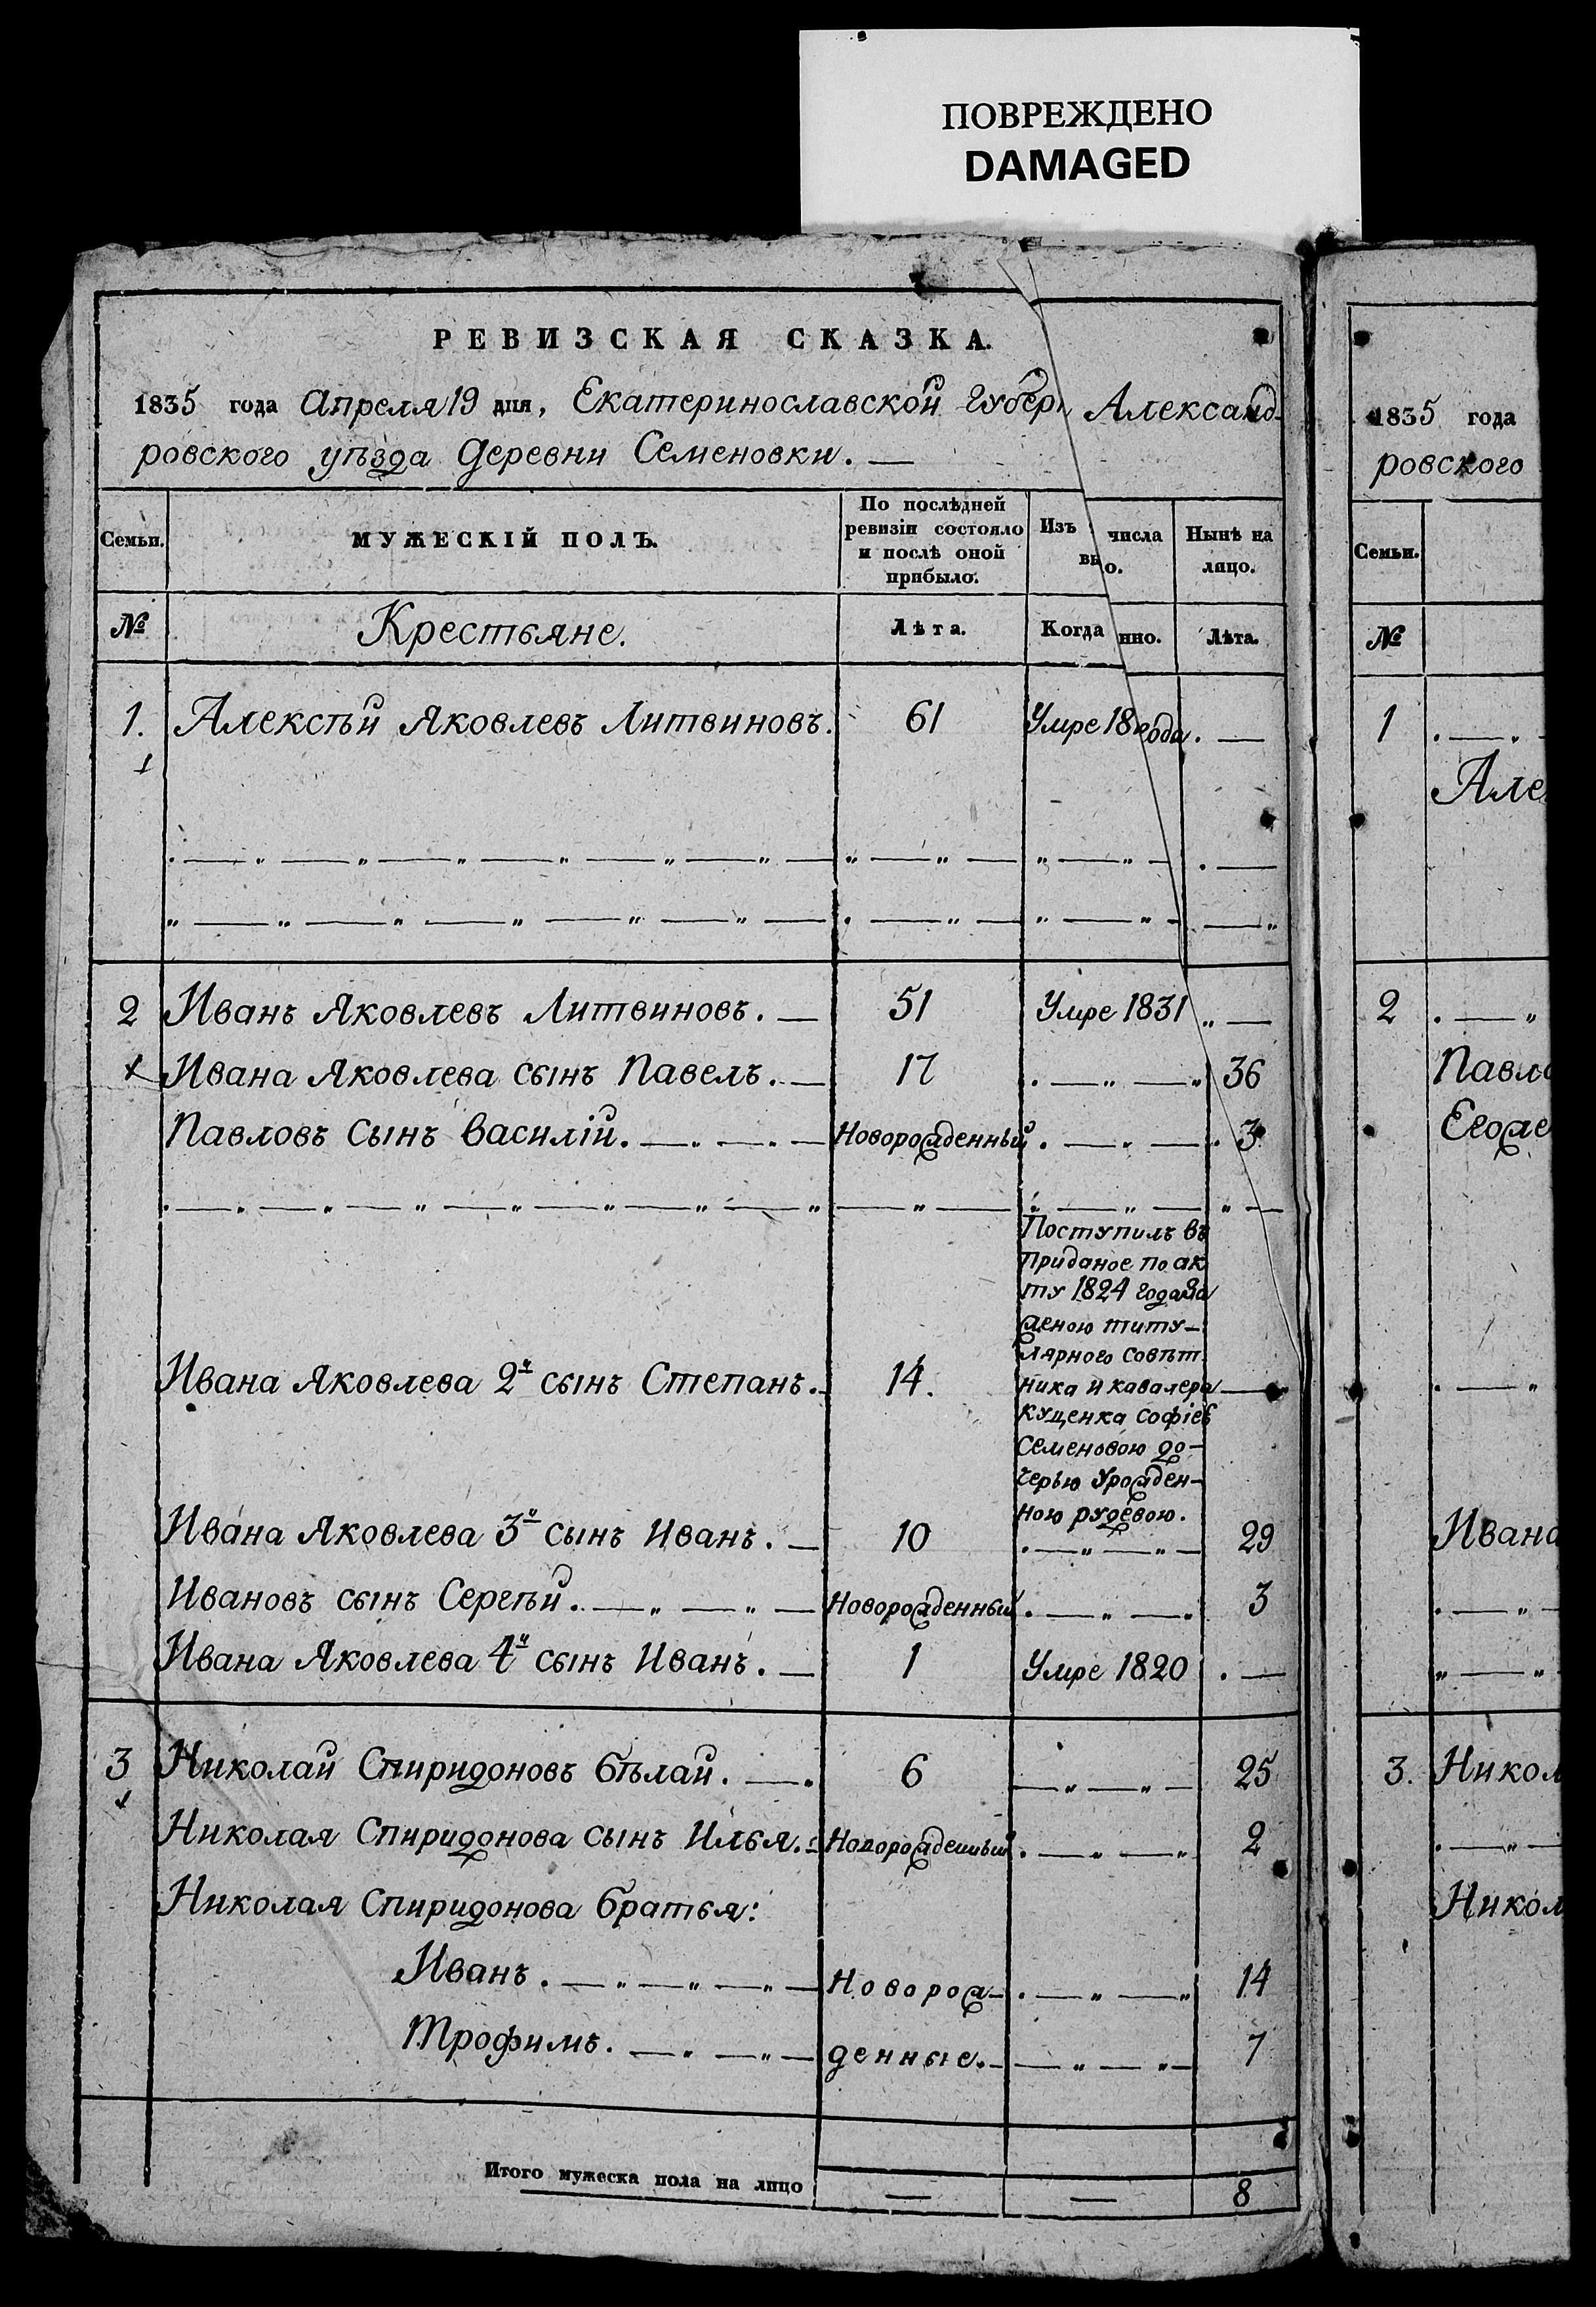 ПОВРЕЖДЕНО
DAMAGED
РЕВИЗСКАЯ СКАЗКА.
1835 года Апреля 19 дня, Екатеринославской Губер Александ-
ровского уѣзда деревни Семеновки. —
Семьи. МУЖЕСКІЙ ПОЛЪ. По послѣдней ревизіи состояло и послѣ оной прибыло. Изъ числа вы о. Нынѣ на лицо.
№ Крестьяне. Лѣта. Когда нно. Лѣта.
1. Алексѣй Яковлевъ Литвиновъ. 61 Умре 18 года. —
2 Иванъ Яковлевъ Литвиновъ. — 51 Умре 1831 „ —
Ивана Яковлева сынъ Павелъ. — 17 . — „ — „ 36
Павловъ сынъ Василій. — Новорожденный . — „ — 3
Поступилъ въ
приданое по ак
ту 1824 года за
женою титу-
лярного совѣт
Ивана Яковлева 2й сынъ Степанъ. 14. ника и кавалера —
Куценка Софіею
Семеновою до-
черью урожден-
ною Рудевою.
Ивана Яковлева 3й сынъ Иванъ. — 10 . — „ — „ — 29
Ивановъ сынъ Сергѣй. — „ — „ — Новорожденный . — „ — „ 3
Ивана Яковлева 4й сынъ Иванъ. — 1 Умре 1820 . —
3 Николай Спиридоновъ Бѣлай. — 6 — „ — „ — 25
Николая Спиридонова сынъ Илья. Новорожденный . — „ — „ 2
Николая Спиридонова братья:
Иванъ. — „ — „ — „ — Новорож- . — „ — „ 14
Трофимъ. — „ — „ — денные. — „ — „ — 7
Итого мужеска пола на лицо — — 8
1835 года
ровского
Семьи.
№
1
Але
2
Павло
Егоже
Ивана
3. Никол
Никол